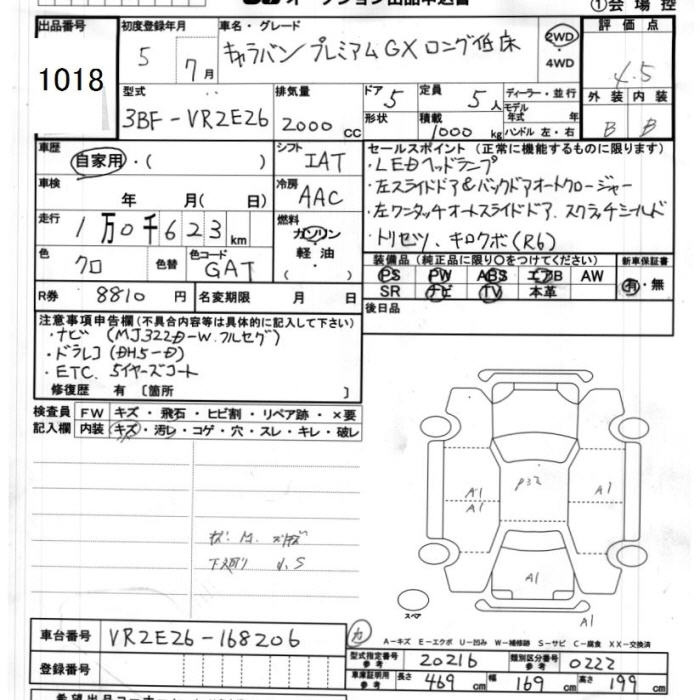 オークション出品申込書
①会場控
出品番号
1018
初度登録年月
5 7月
車名・グレード
キャラバン プレミアムGX ロング低床
2WD
・
4WD
評価点
4.5
外装 内装
B B
型式
3BF-VR2E26
排気量
2000cc
ドア 5
形状
定員 5人
積載 1000kg
ディーラー・並行
モデル年式 年式
ハンドル 左・右
車歴
自家用・( )
シフト
IAT
車検
年 月( 日)
冷房
AAC
走行
1万0千623km
燃料
ガソリン
軽油
( ・ )
色
クロ
色替
色コード
GAT
R券 8810円
名変期限 月 日
セールスポイント(正常に機能するものに限ります)
・LEDヘッドランプ
・左スライドドア&バックドアオートクロージャー
・左ワンタッチオートスライドドア、スクラッチシールド
・トリセツ、キロクボ(R6)
装備品(純正品に限り○をつけてください)
新車保証書
PS PW ABS エアB AW
SR ナビ TV 本革
有・無
後日品
注意事項申告欄(不具合内容等は具体的に記入して下さい)
・ナビ (MJ322D-W.フルセグ)
・ドラレコ(DH5-D)
・ETC. 5イヤーズコート
修復歴 有〔箇所 〕
検査員
記入欄
FW キズ・飛石・ヒビ割・リペア跡・×要
内装 キズ・汚レ・コゲ・穴・スレ・キレ・破レ
下廻り
U.S
A1
A1
P32
A1
A1
A1
スペア
車台番号 VR2E26-168206
登録番号
A-キズ E-エクボ U-凹み W-補修跡 S-サビ C-腐食 XX-交換済
型式指定番号
参考
20216
類別区分番号
参考
0222
車庫証明用
参考
長さ 469cm 幅 169cm 高さ 199cm